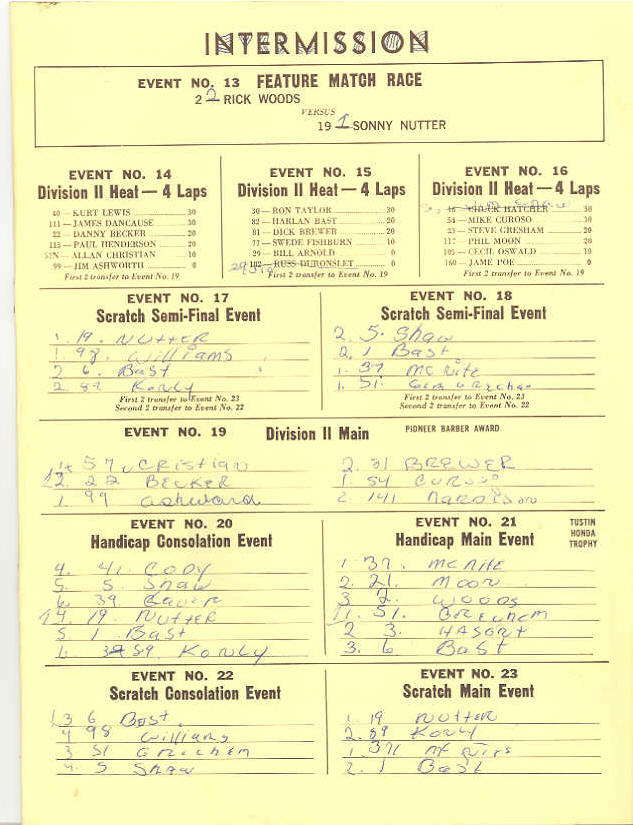 INTERMISSION
EVENT NO. 13 FEATURE MATCH RACE
2 2 RICK WOODS
VERSUS
19 1 SONNY NUTTER
EVENT NO. 14
Division II Heat — 4 Laps
40 — KURT LEWIS 30
111 — JAMES DANCAUSE 30
22 — DANNY BECKER 20
113 — PAUL HENDERSON 20
57N — ALLAN CHRISTIAN 10
99 — JIM ASHWORTH 0
First 2 transfer to Event No. 19
EVENT NO. 15
Division II Heat — 4 Laps
30 — RON TAYLOR 30
82 — HARLAN BAST 20
81 — DICK BREWER 20
77 — SWEDE FISHBURN 10
29 — BILL ARNOLD 0
182 — RUSS DURONSLET 0
First 2 transfer to Event No. 19
EVENT NO. 16
Division II Heat — 4 Laps
16 — CHUCK HATCHER 30
54 — MIKE CUROSO 30
23 — STEVE GRESHAM 20
117 — PHIL MOON 20
105 — CECIL OSWALD 10
160 — JAME POE 0
First 2 transfer to Event No. 19
EVENT NO. 17
Scratch Semi-Final Event
1. 19. NUTTER
1. 98. Williams
2 6. Bast
2. 89 Konly
First 2 transfer to Event No. 23
Second 2 transfer to Event No. 22
EVENT NO. 18
Scratch Semi-Final Event
2. 5. Shaw
2. 1 Bast
1. 37. McRite
1. 51.
First 2 transfer to Event No. 23
Second 2 transfer to Event No. 22
EVENT NO. 19 Division II Main PIONEER BARBER AWARD
57 Cristian
2. 22 BECKER
1. 99 ashward
2. 81 BREWER
1. 54 CUROSO
2. 141
EVENT NO. 20
Handicap Consolation Event
4. 41. CODY
5. 5. Shaw
6 39. Bauer
4. 19. NUTTER
5 1. Bast
6 89. Konly
EVENT NO. 21
Handicap Main Event
TUSTIN
HONDA
TROPHY
1 37. McRITE
2. 21. Moon
3 2. WOODS
1. 51.
2 3.
3. 6 Bast
EVENT NO. 22
Scratch Consolation Event
3 6 Bast
4 98 Williams
3 51 Grechem
4. 5 Shaw
EVENT NO. 23
Scratch Main Event
1. 19 NUTTER
2. 89 Konly
1. 37
2. 1 Bast